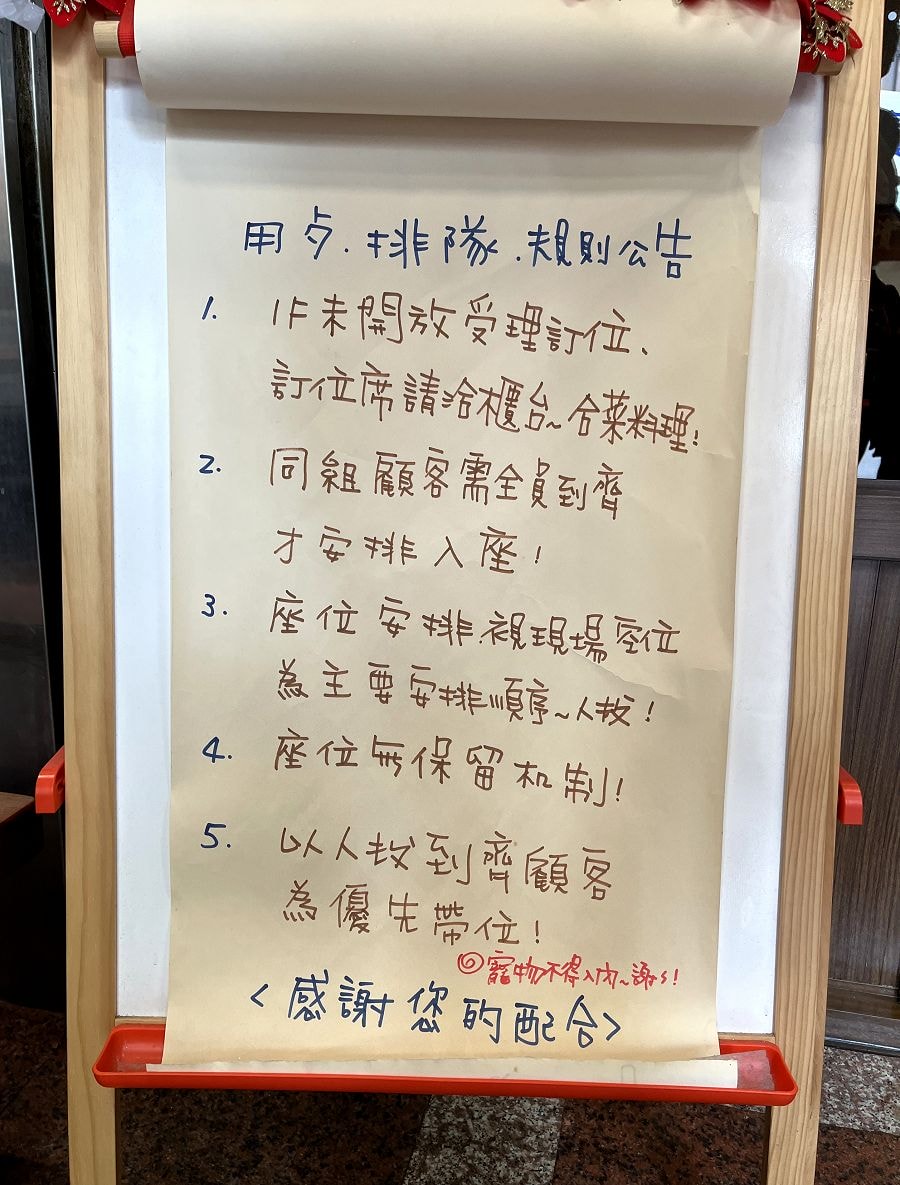 用歺.排隊.規則公告
1. 1F未開放受理訂位、
訂位席請洽櫃台~合菜料理!
2. 同組顧客需全員到齊
才安排入座!
3. 座位安排.視現場空位
為主要安排順序~人数!
4. 座位無保留机制!
5. 以人数到齊顧客
為優先帶位!
◎寵物不得入內~謝々!
<感謝您的配合>